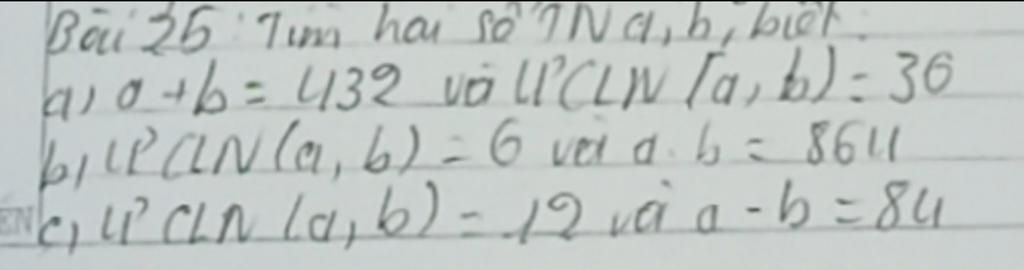 Bài 25: Tìm hai số TN a, b, biết:
a) a + b = 432 và ƯCLN (a, b) = 36
b) ƯCLN (a, b) = 6 và a. b = 864
c) ƯCLN (a, b) = 12 và a - b = 84